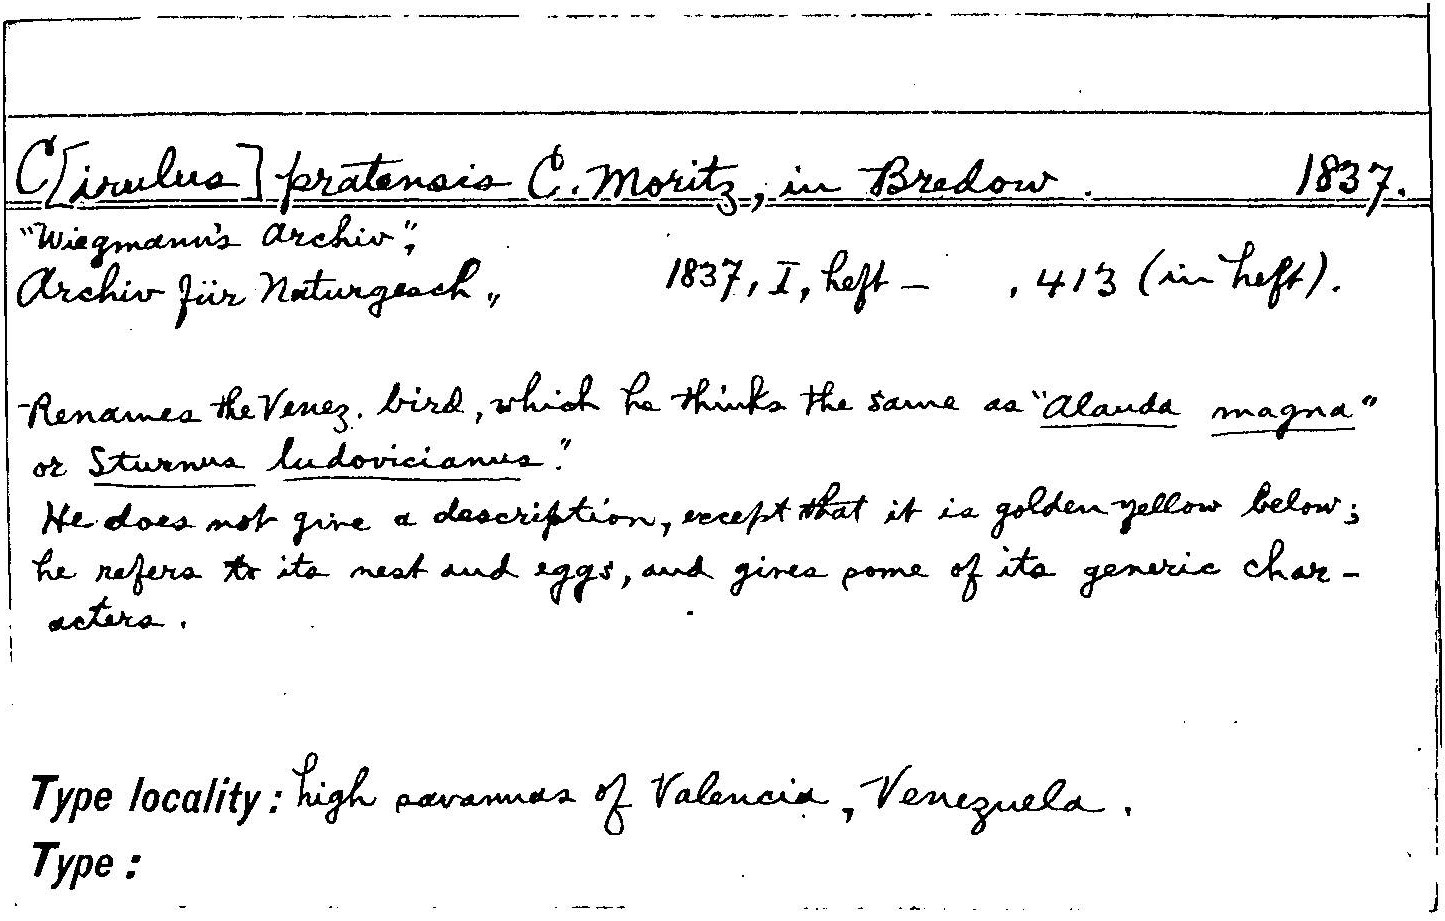 C[irulus] pratensis C. Moritz, in Bredow. 1837.
"Wiegmann's Archiv",
Archiv für Naturgesch., 1837, I, heft — , 413 (in heft).
Renames the Venez. bird, which he thinks the same as "Alauda magna"
or Sturnus ludovicianus."
He does not give a description, except that it is golden yellow below;
he refers to its nest and eggs, and gives some of its generic char-
acters.
Type locality: high savannas of Valencia, Venezuela.
Type: